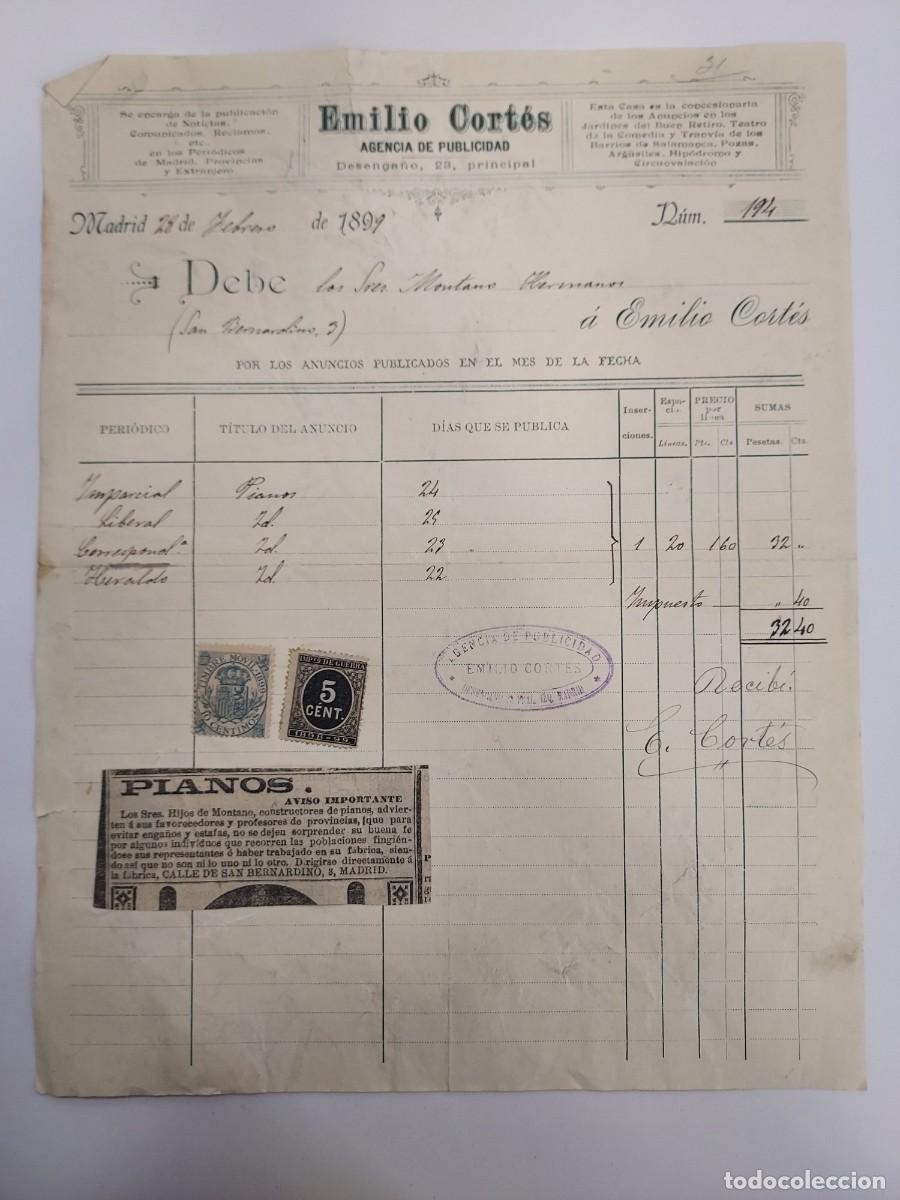 31
Se encarga de la publicación
de Noticias,
Comunicados, Reclamos,
etc.,
en los Periódicos
de Madrid, Provincias
y Extranjero
Emilio Cortés
AGENCIA DE PUBLICIDAD
Desengaño, 23, principal
Esta Casa es la concesionaria
de los Anuncios en los
Jardines del Buen Retiro, Teatro
de la Comedia y Tranvía de los
Barrios de Salamanca, Pozas,
Argüelles, Hipódromo y
Circunvalación
Madrid 28 de Febrero de 1899
Núm. 194
Debe los Sres Montano Hermanos
(San Bernardino, 3) á Emilio Cortés
POR LOS ANUNCIOS PUBLICADOS EN EL MES DE LA FECHA
PERIÓDICO TÍTULO DEL ANUNCIO DÍAS QUE SE PUBLICA Inserciones. Espacio Líneas. PRECIO por línea Pts. Cts SUMAS Pesetas. Cts.
Imparcial Pianos 24
Liberal Id. 25
Correspond.ª Id. 23 " 1 20 1 60 32 "
Heraldo Id. 22
Impuesto " 40
32 40
TIMBRE MOVIL 1899
10 CENTIMOS
IMPTO DE GUERRA
5
CENT.
1898-99
AGENCIA DE PUBLICIDAD
EMILIO CORTÉS
MADRID
Recibí.
E. Cortés
PIANOS.
AVISO IMPORTANTE
Los Sres. Hijos de Montano, constructores de pianos, advier-
ten á sus favorecedores y profesores de provincias, (que para
evitar engaños y estafas, no se dejen sorprender su buena fe
por algunos individuos que recorren las poblaciones fingién-
dose sus representantes ó haber trabajado en su fábrica, sien-
do así que no son ni lo uno ni lo otro. Dirigirse directamente á
la fábrica, CALLE DE SAN BERNARDINO, 3, MADRID.
todocoleccion